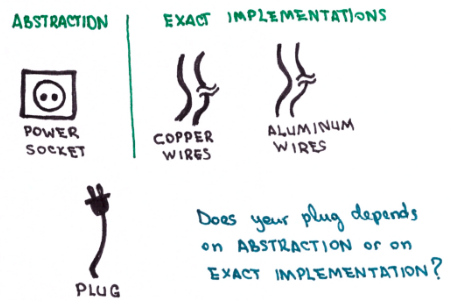 ABSTRACTION
EXACT IMPLEMENTATIONS
POWER
SOCKET
COPPER
WIRES
ALUMINUM
WIRES
PLUG
Does your plug depends
on ABSTRACTION or on
EXACT IMPLEMENTATION?